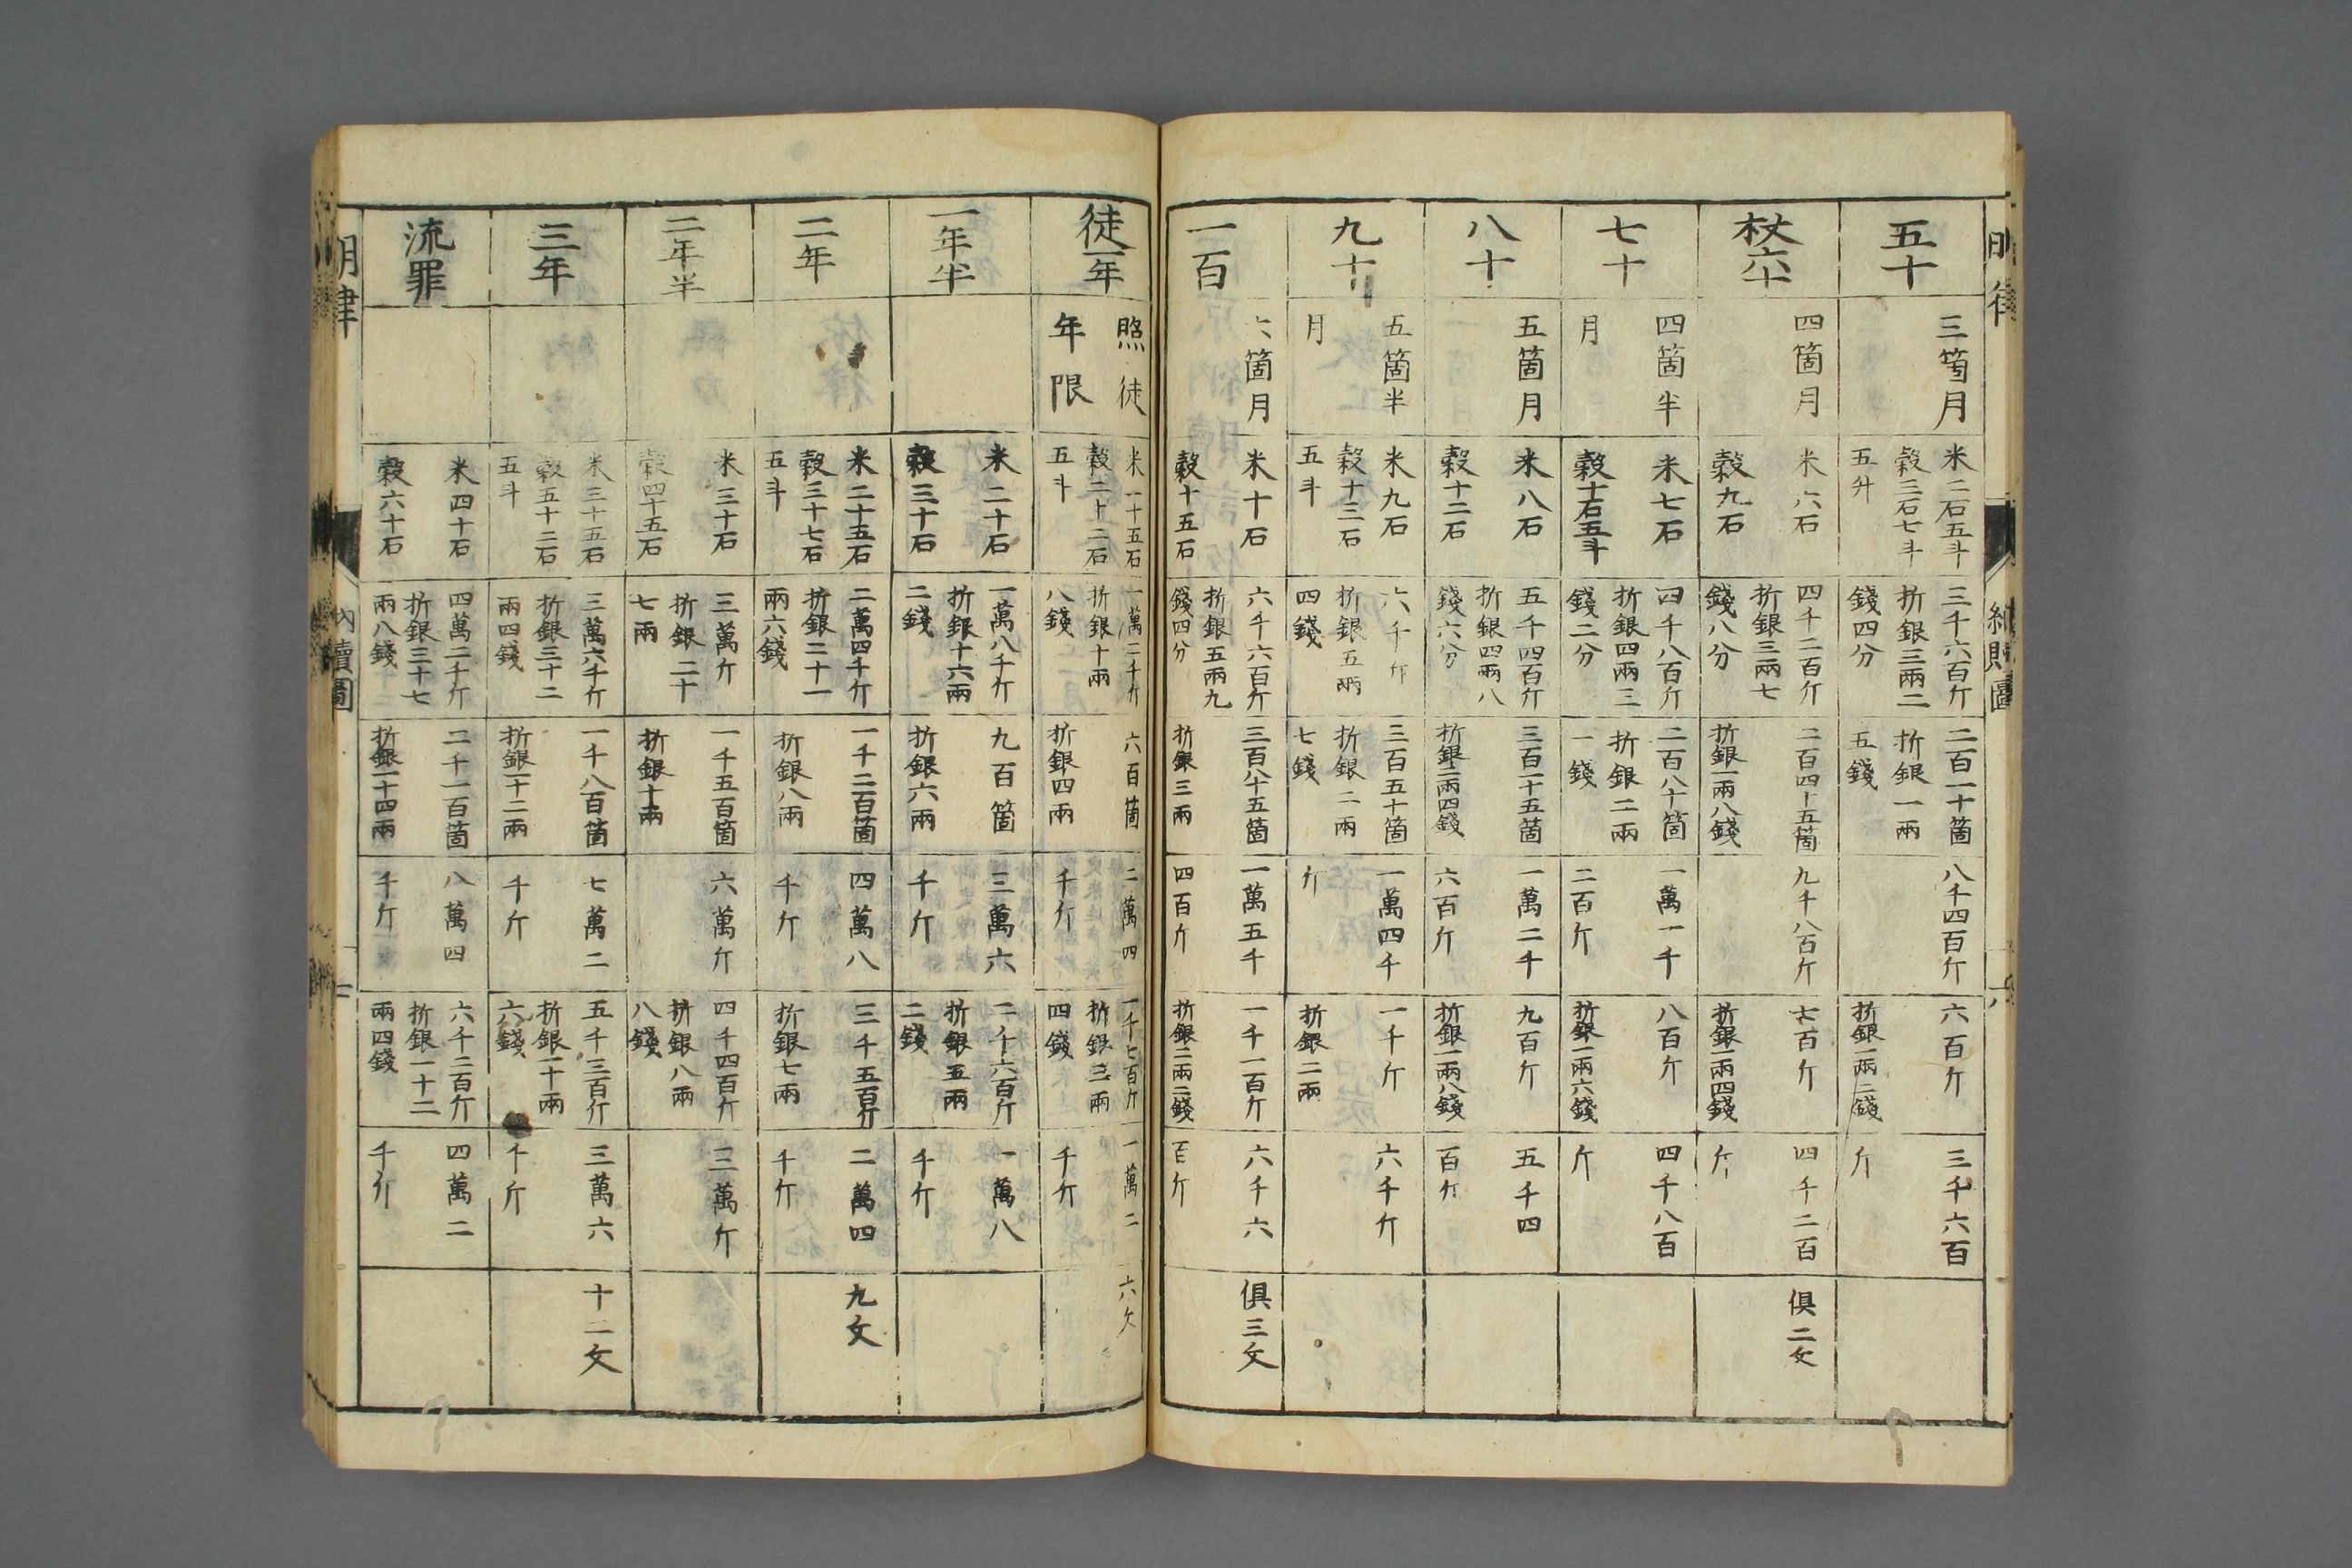 明律
納贖圖
五十
三箇月
米二石五斗
穀三石七斗
五升
三千六百斤
折銀三兩二
錢四分
二百一十箇
折銀一兩
五錢
八千四百斤
六百斤
折銀一兩二錢
三千六百
斤
杖六十
四箇月
米六石
穀九石
四千二百斤
折銀三兩七
錢八分
二百四十五箇
折銀一兩八錢
九千八百斤
七百斤
折銀一兩四錢
四千二百
斤
俱二文
七十
四箇半
月
米七石
穀十石五斗
四千八百斤
折銀四兩三
錢二分
二百八十箇
折銀二兩
一錢
一萬一千
二百斤
八百斤
折銀一兩六錢
四千八百
斤
八十
五箇月
米八石
穀十二石
五千四百斤
折銀四兩八
錢六分
三百一十五箇
折銀二兩四錢
一萬二千
六百斤
九百斤
折銀一兩八錢
五千四
百斤
九十
五箇半
月
米九石
穀十三石
五斗
六千斤
折銀五兩
四錢
三百五十箇
折銀二兩
七錢
一萬四千
斤
一千斤
折銀二兩
六千斤
一百
六箇月
米十石
穀十五石
六千六百斤
折銀五兩九
錢四分
三百八十五箇
折銀三兩
一萬五千
四百斤
一千一百斤
折銀二兩二錢
六千六
百斤
俱三文
徒一年
照徒
年限
米一十五石
穀二十二石
五斗
一萬二千斤
折銀十兩
八錢
六百箇
折銀四兩
二萬四
千斤
一千七百斤
折銀三兩
四錢
一萬二
千斤
六文
一年半
米二十石
穀三十石
一萬八千斤
折銀十六兩
二錢
九百箇
折銀六兩
三萬六
千斤
二千六百斤
折銀五兩
二錢
一萬八
千斤
二年
米二十五石
穀三十七石
五斗
二萬四千斤
折銀二十一
兩六錢
一千二百箇
折銀八兩
四萬八
千斤
三千五百斤
折銀七兩
二萬四
千斤
九文
二年半
米三十石
穀四十五石
三萬斤
折銀二十
七兩
一千五百箇
折銀十兩
六萬斤
四千四百斤
折銀八兩
八錢
三萬斤
三年
米三十五石
穀五十二石
五斗
三萬六千斤
折銀三十二
兩四錢
一千八百箇
折銀一十二兩
七萬二
千斤
五千三百斤
折銀一十兩
六錢
三萬六
千斤
十二文
流罪
米四十石
穀六十石
四萬二千斤
折銀三十七
兩八錢
二千一百箇
折銀一十四兩
八萬四
千斤
六千二百斤
折銀一十二
兩四錢
四萬二
千斤
明律
內贖圖